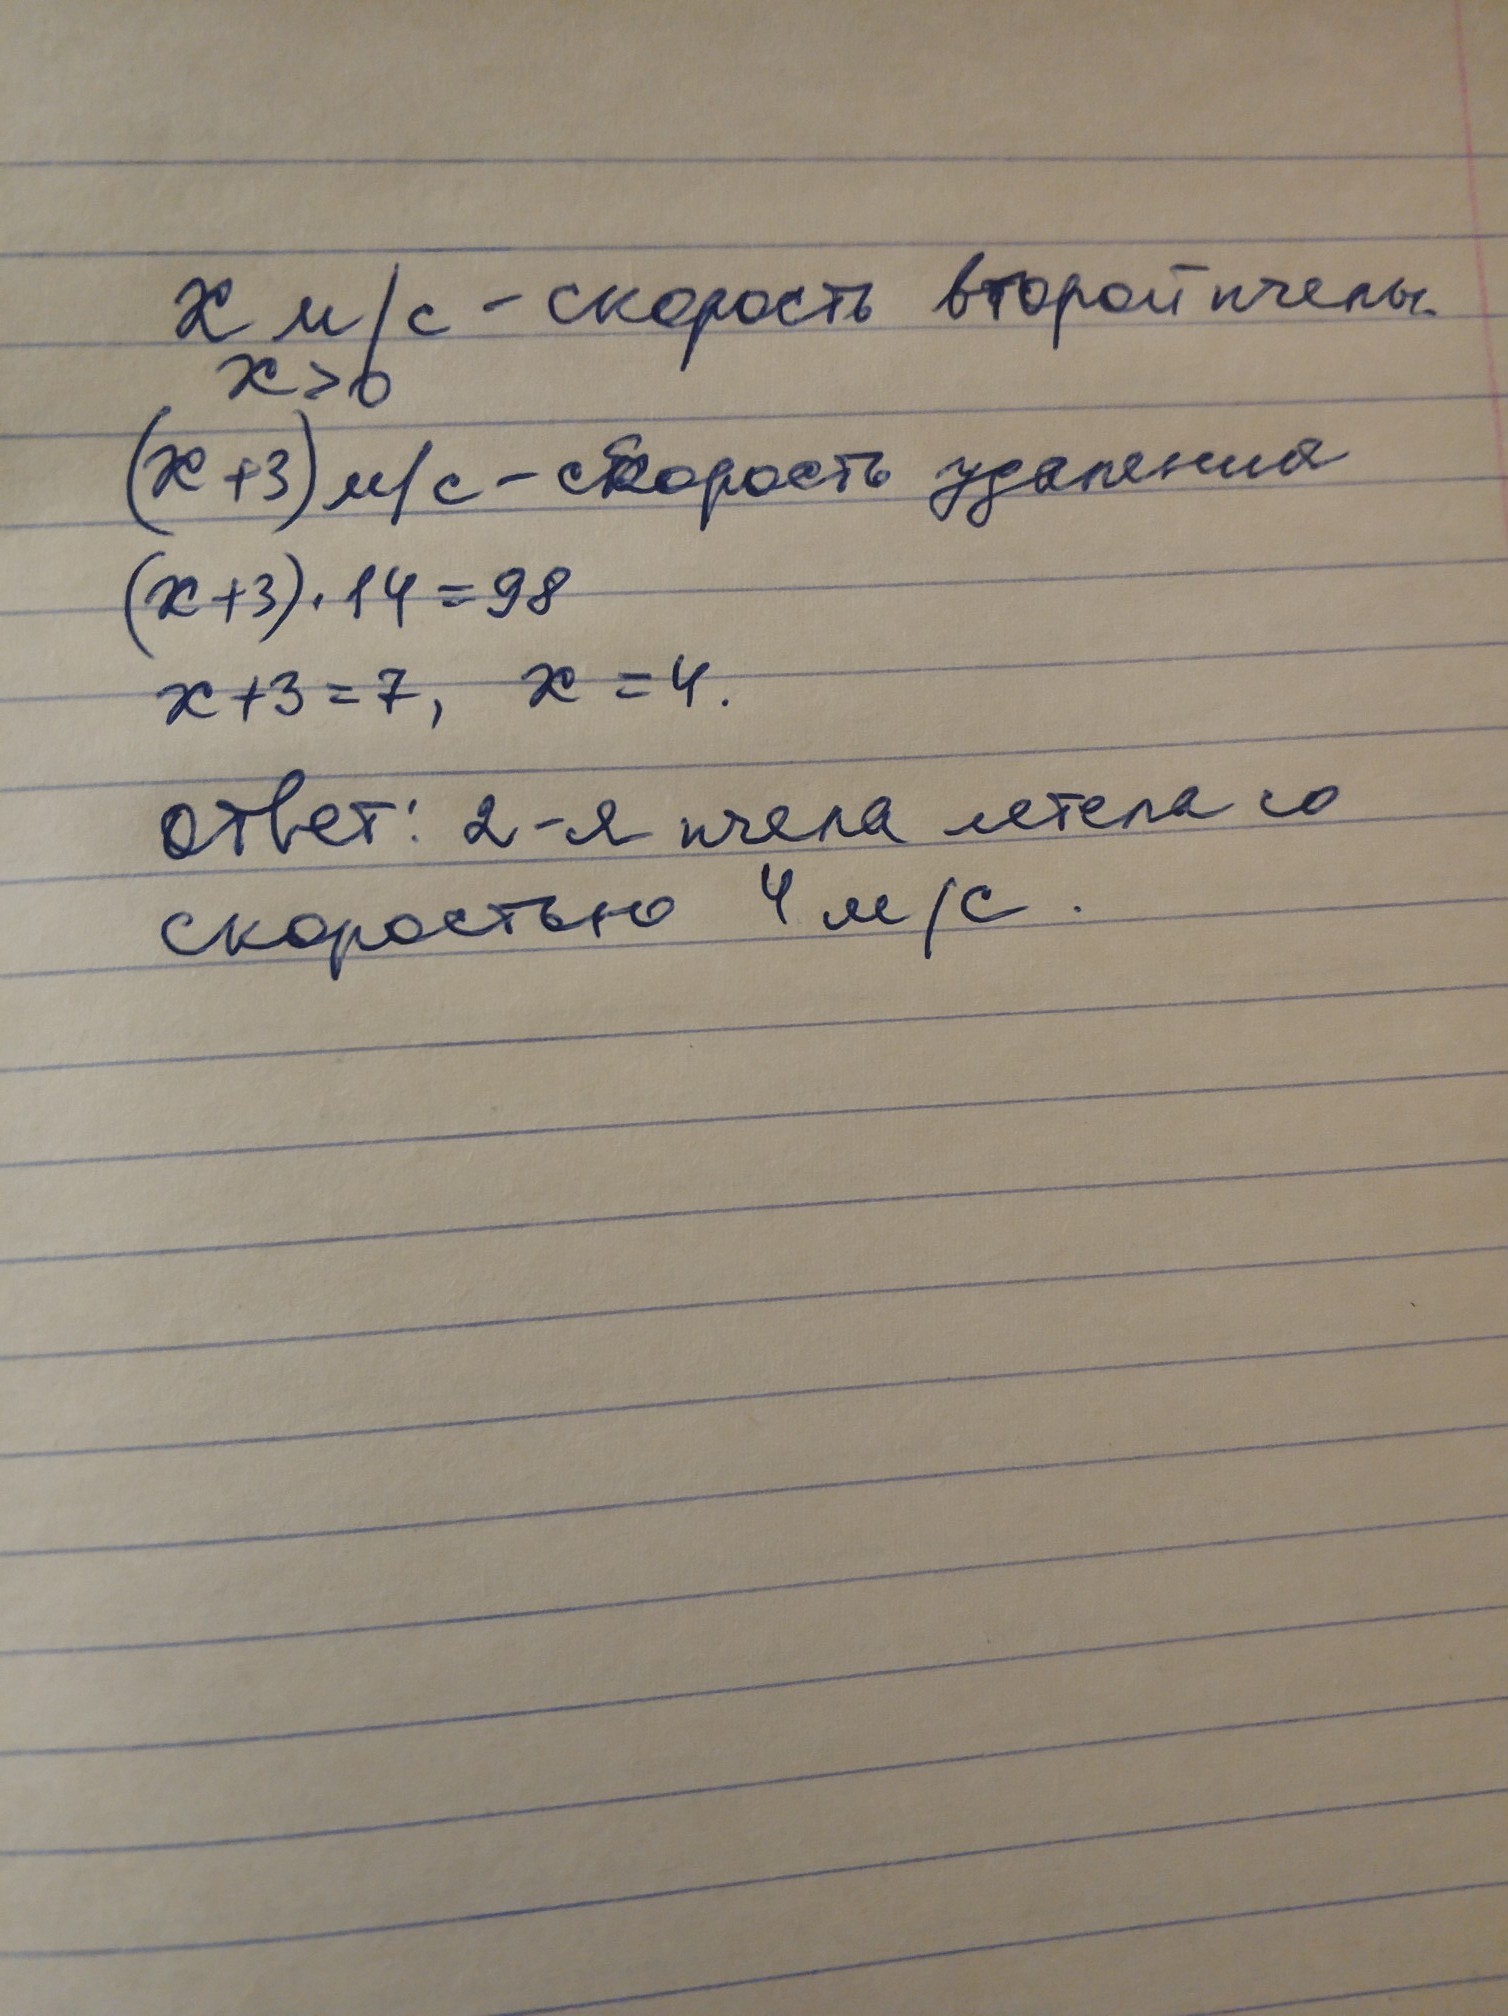 x м/с - скорость второй пчелы.
x>0
(x+3) м/с - скорость удаления
(x+3)·14=98
x+3=7, x=4.
Ответ: 2-я пчела летела со
скоростью 4 м/с.